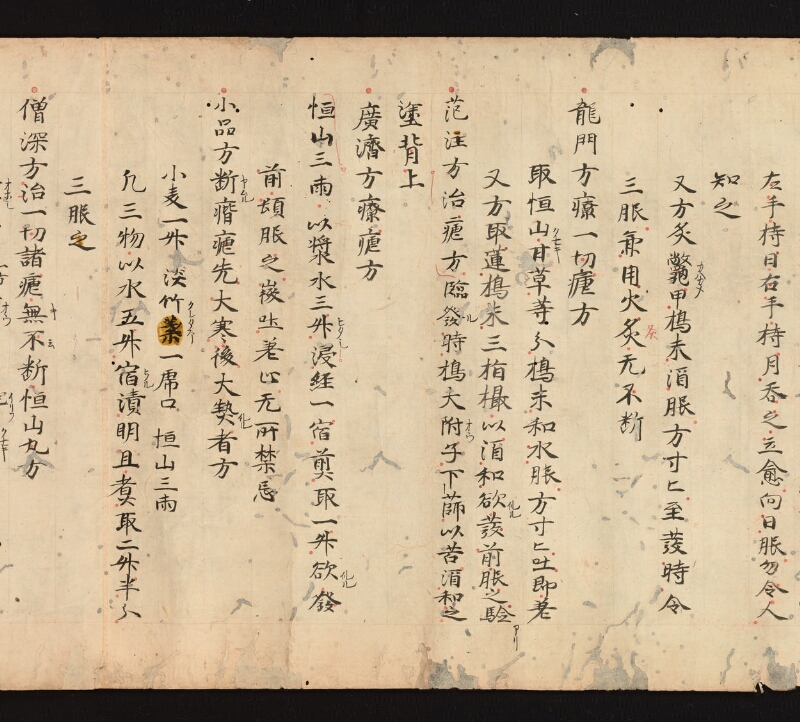 左手持日右手持月吞之立愈向日服勿令人
知之
又方炙鼈甲檮末酒服方寸匕至發時令
三服兼用火炙无不断
龍門方療一切瘧方
取恒山甘草等分檮末和水服方寸匕吐即差
又方取蓮檮末三指撮以酒和欲發前服之驗
范汪方治瘧方臨發時檮大附子下篩以苦酒和之
塗背上
廣濟方療瘧方
恒山三兩以漿水三升浸経一宿煎取一升欲發
前頓服之後吐差止无所禁忌
小品方断瘧先大寒後大熱者方
小麦一升淡竹葉一虎口恒山三兩
凡三物以水五升宿漬明旦煮取二升半分
三服之
僧深方治一切諸瘧無不断恒山丸方